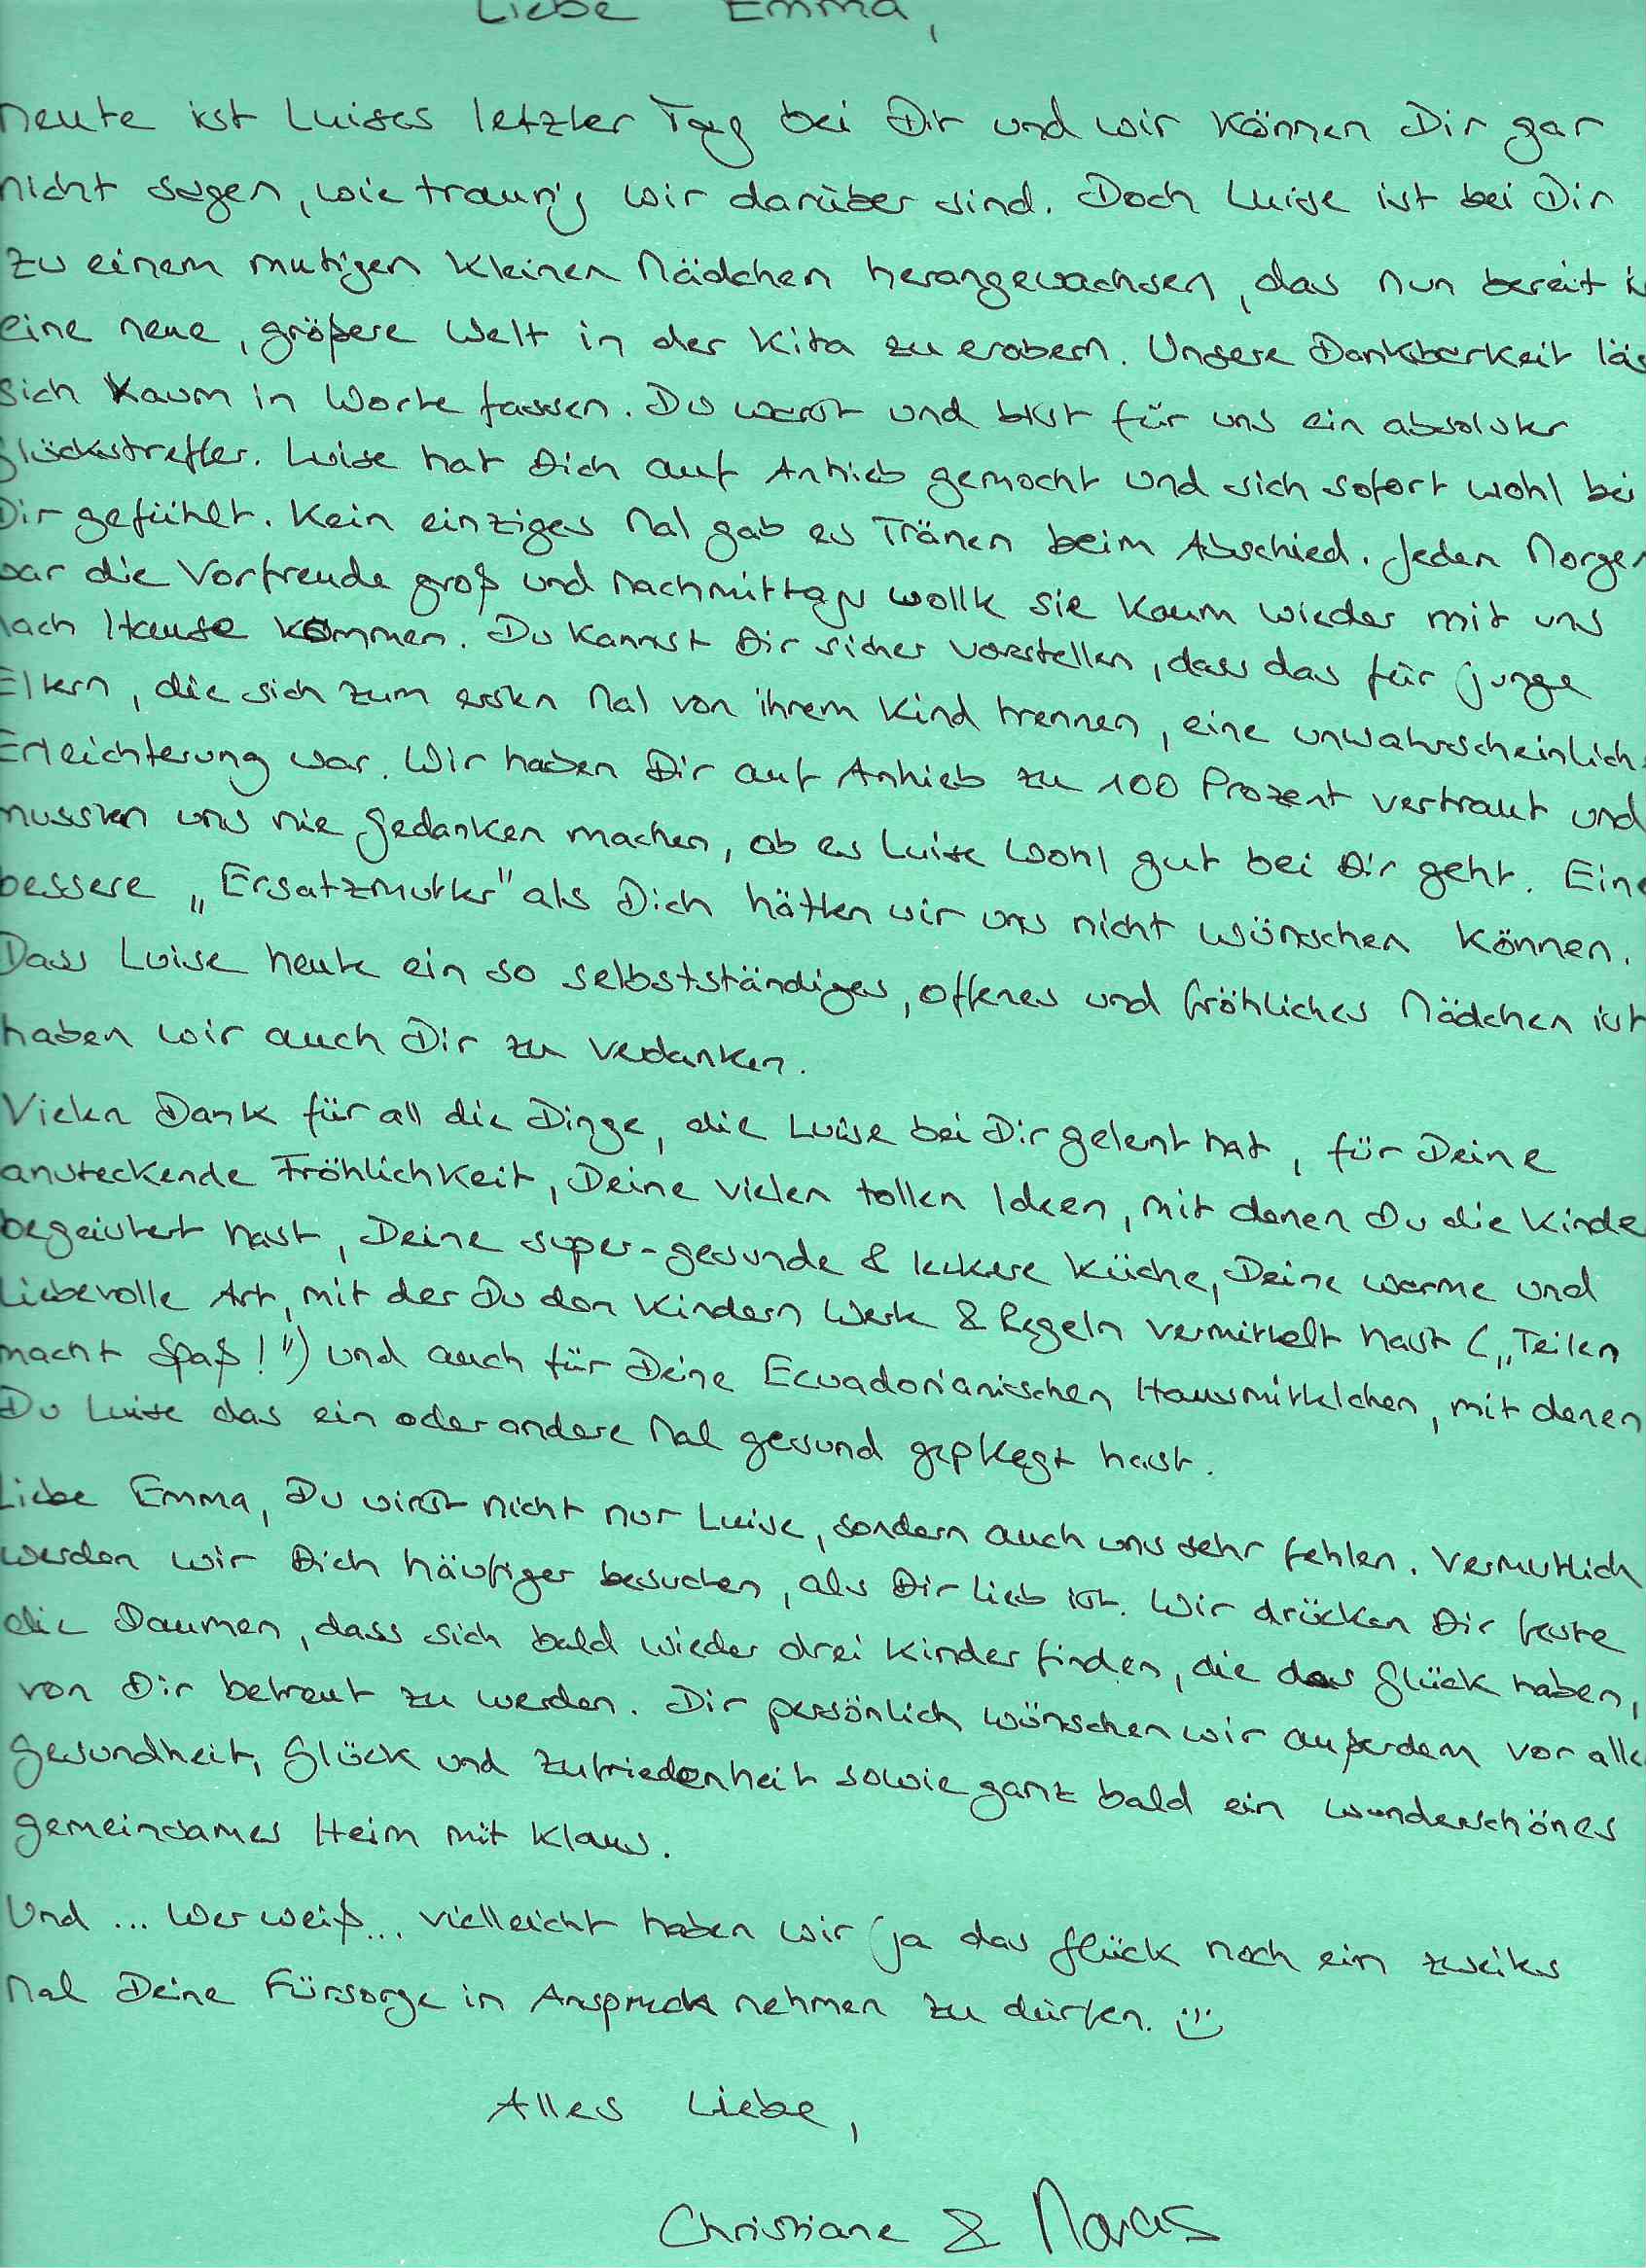 Liebe Emma,
heute ist Luises letzter Tag bei Dir und wir können Dir gar
nicht sagen, wie traurig wir darüber sind. Doch Luise ist bei Dir
zu einem mutigen kleinen Mädchen herangewachsen, das nun bereit i
eine neue, größere Welt in der Kita zu erobern. Unsere Dankbarkeit läs
sich kaum in Worte fassen. Du warst und bist für uns ein absoluter
Glückstreffer. Luise hat Dich auf Anhieb gemocht und sich sofort wohl bei
Dir gefühlt. Kein einziges Mal gab es Tränen beim Abschied. Jeden Morgen
war die Vorfreude groß und nachmittags wollte sie kaum wieder mit uns
nach Hause kommen. Du kannst Dir sicher vorstellen, dass das für junge
Eltern, die sich zum ersten Mal von ihrem Kind trennen, eine unwahrscheinliche
Erleichterung war. Wir haben Dir auf Anhieb zu 100 Prozent vertraut und
mussten uns nie Gedanken machen, ob es Luise wohl gut bei Dir geht. Eine
bessere „Ersatzmutter" als Dich hätten wir uns nicht wünschen können.
Dass Luise heute ein so selbstständiges, offenes und fröhliches Mädchen ist
haben wir auch Dir zu vedanken.
Vielen Dank für all die Dinge, die Luise bei Dir gelent hat, für Deine
ansteckende Fröhlichkeit, Deine vielen tollen Ideen, mit denen Du die Kinde
begeistert hast, Deine super-gesunde & leckere Küche, Deine warme und
liebevolle Art, mit der Du den Kindern Werte & Regeln vermittelt hast („Teilen
macht Spaß!") und auch für Deine Ecuadorianischen Hausmittelchen, mit denen
Du Luise das ein oder andere Mal gesund gepflegt hast.
Liebe Emma, Du wirst nicht nur Luise, sondern auch uns sehr fehlen. Vermutlich
werden wir Dich häufiger besuchen, als Dir lieb ist. Wir drücken Dir feste
die Daumen, dass sich bald wieder drei Kinder finden, die das Glück haben,
von Dir betreut zu werden. Dir persönlich wünschen wir außerdem vor alle
Gesundheit, Glück und Zufriedenheit sowie ganz bald ein wunderschönes
gemeinsames Heim mit Klaus.
Und ... wer weiß... vielleicht haben wir ja das Glück noch ein zweites
Mal Deine Fürsorge in Anspruch nehmen zu dürfen. :)
Alles Liebe,
Christiane & Marcus